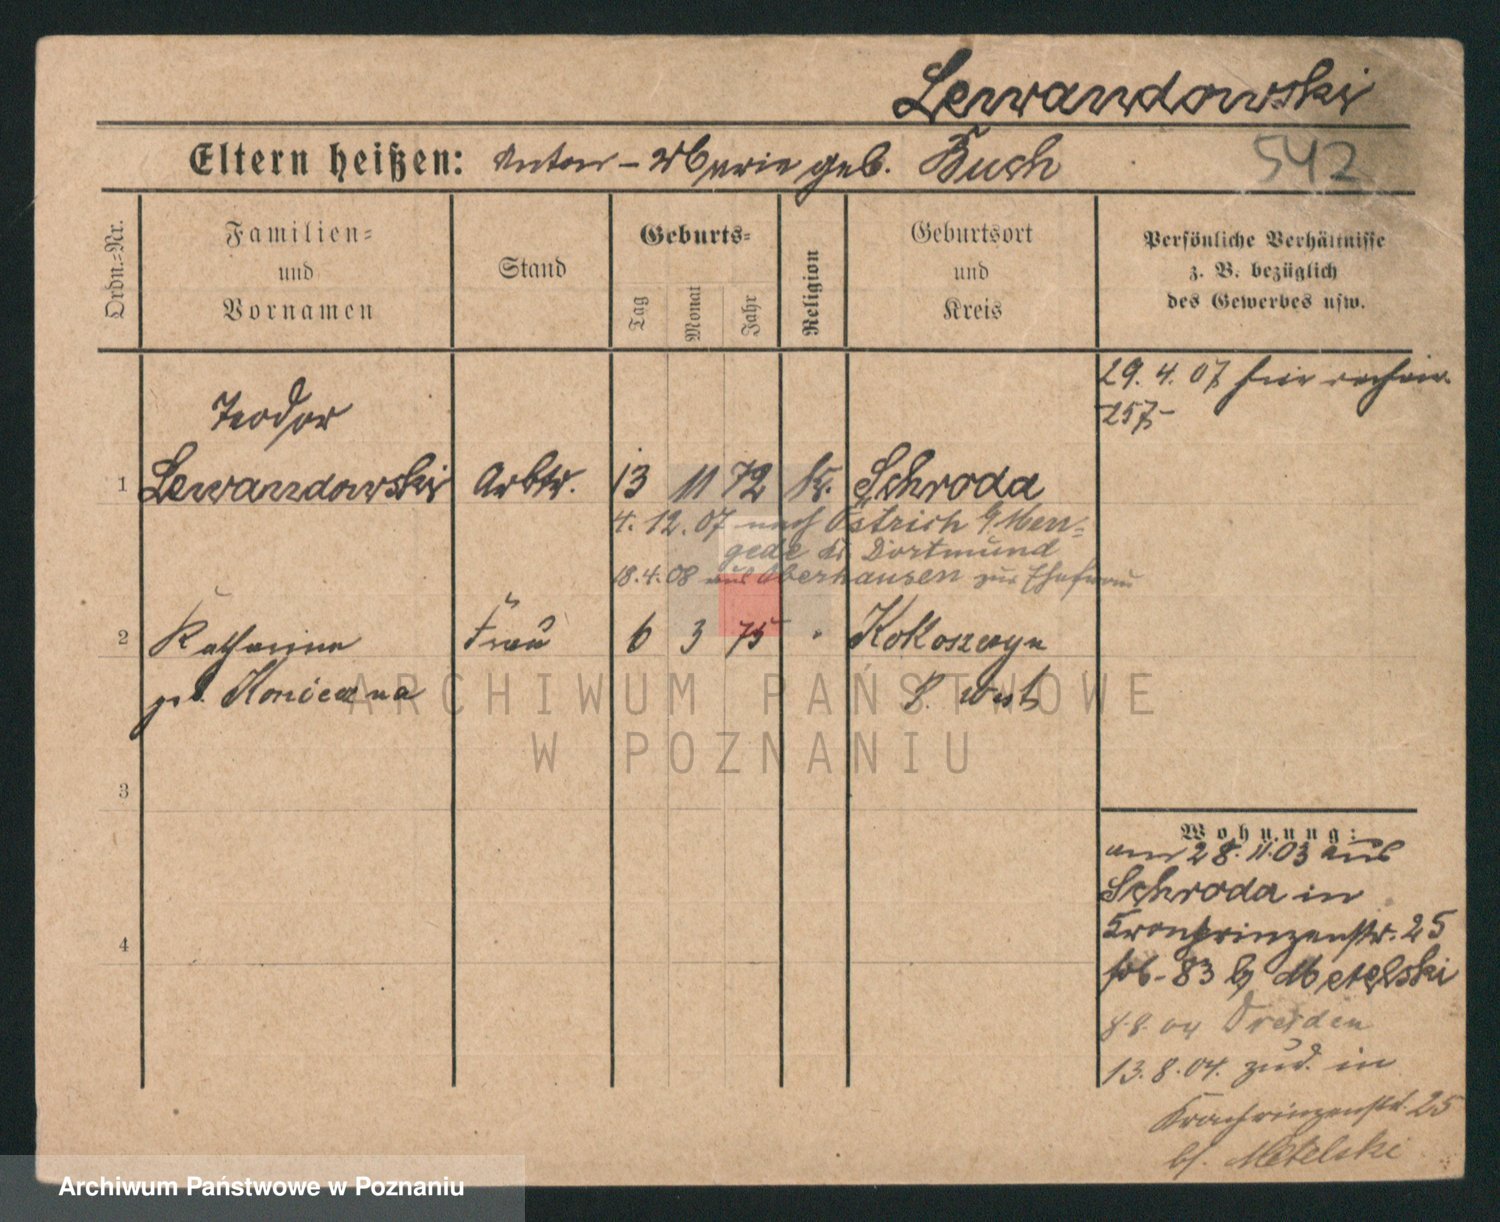 Lewandowski
Eltern heißen: Anton - Marie geb. Buch
542
Ordn.-Nr.
Familien-
und
Vornamen
Stand
Geburts-
Tag
Monat
Jahr
Religion
Geburtsort
und
Kreis
Persönliche Verhältnisse
z. B. bezüglich
des Gewerbes usw.
29. 4. 07 hier
257
Teodor
1 Lewandowski Arbtr. 13 11 72 k. Schroda
4. 12. 07 nach Östrich b/ Men-
gede Kr. Dortmund
18. 4. 08 aus Oberhausen zur Ehefrau
2 Katharina Frau 6 3 75 " Kokoszczyn
geb. Konieczna P. West
ARCHIWUM PAŃSTWOWE
W POZNANIU
3
4
Wohnung:
am 28. 11. 03 aus
Schroda in
Kronprinzenstr. 25
83 b/ Metelski
8. 8. 04 Dresden
13. 8. 04. zud. in
Kronprinzenstr. 25
b/. Metelski
Archiwum Państwowe w Poznaniu